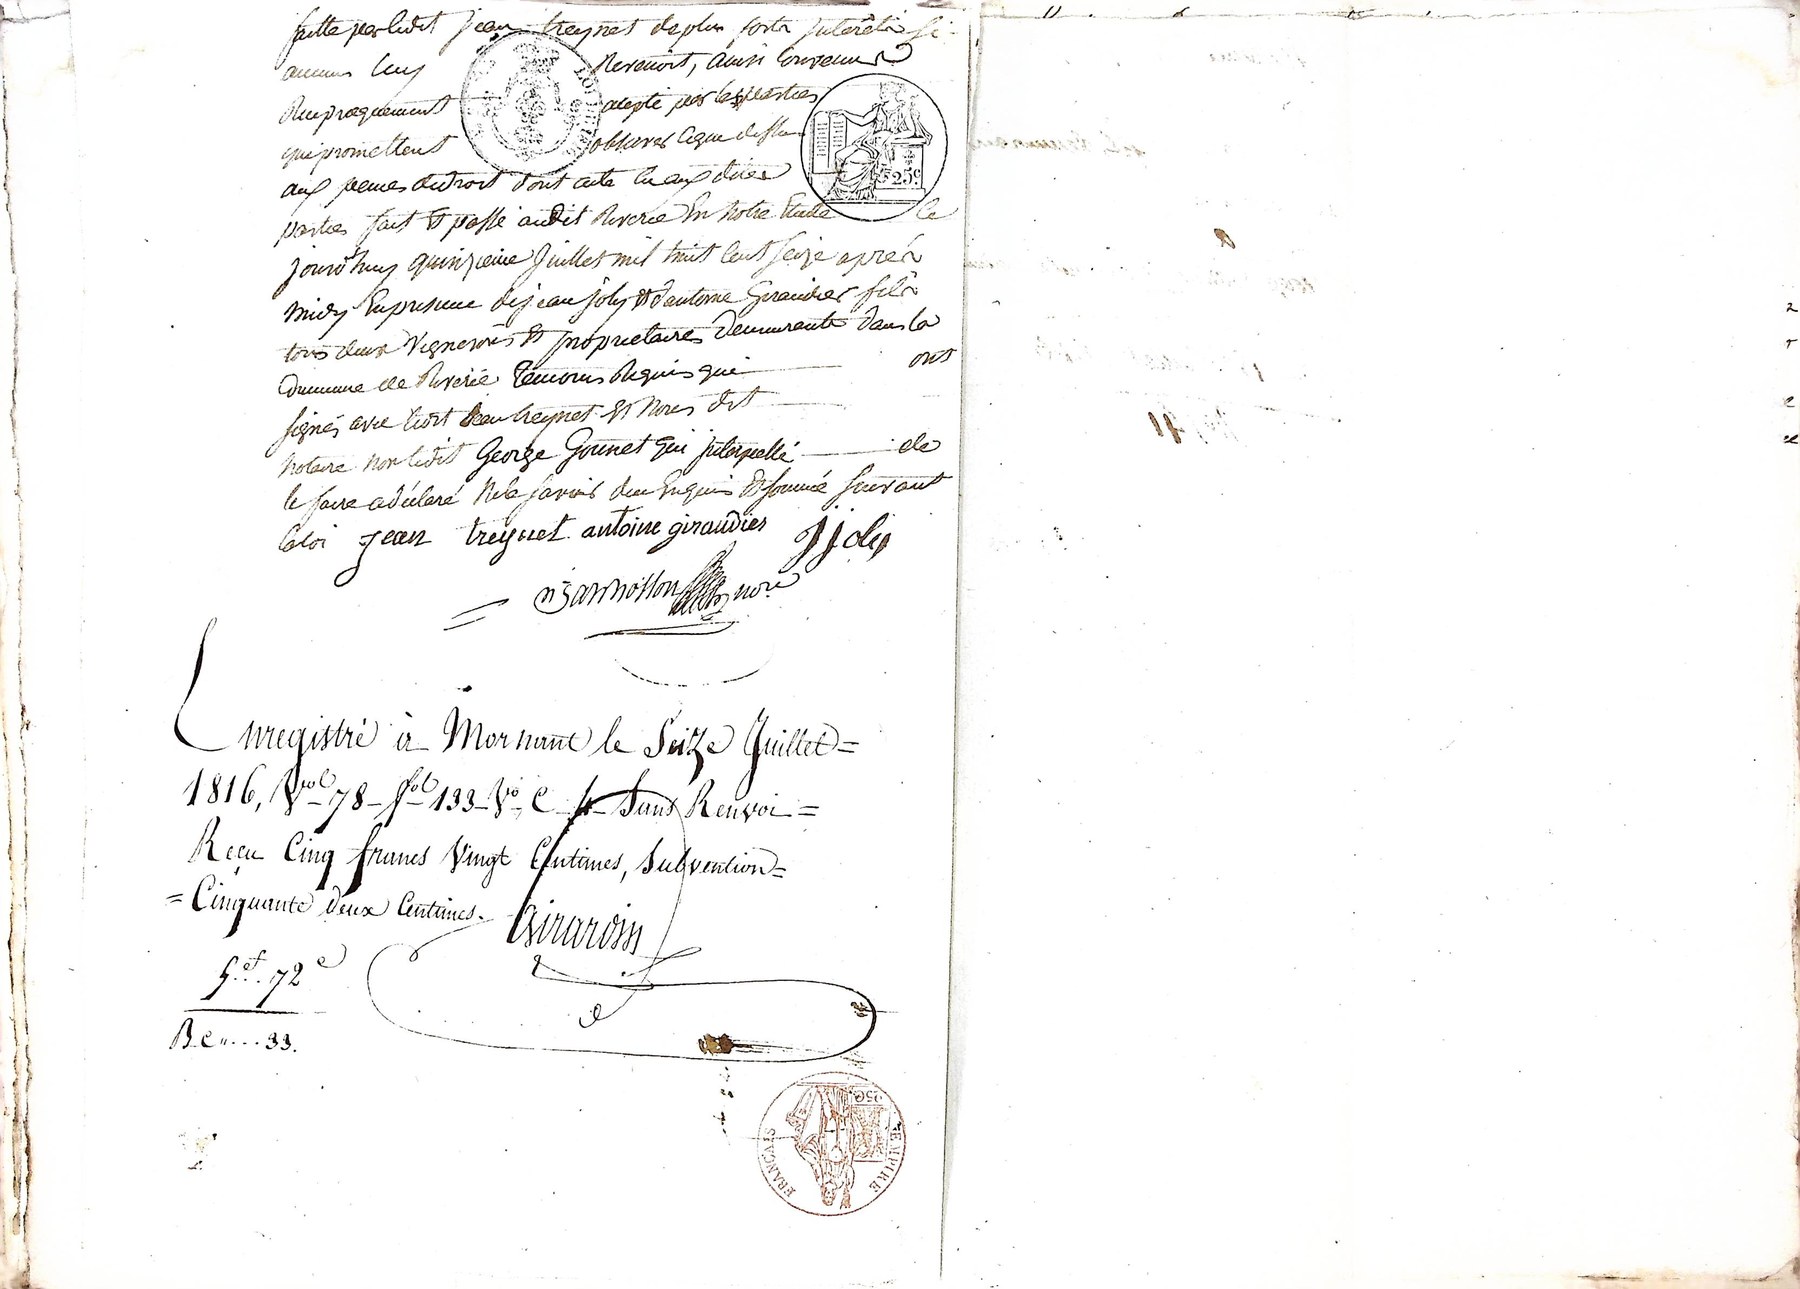 faitte par ledit jean treynet de plus forts interêts si
aucuns luy Revenoit, ainsi Convenu
Reciproquement accepté par les parties
qui promettent observer ce que dessus
aux peines de droit dont acte lu aux dites
parties fait et passé audit Riverie En notre Etude Ce
jourd'huy quinzieme Juillet mil huit Cent Seize après
midy En presence de jean joly et d'antoine Giraudier fils
tous deux Vignerons et proprietaires demeurants dans la
Commune de Riverie temoins Requis qui ont
signés avec ledit Jean treynet et Nous dit
notaire non ledit George Gounet qui interpellé de
le faire a déclaré Ne le savoir de ce Enquis et sommé suivant
la loi jean treynet antoine giraudier jjoly
nore
Enregistré à Mornant le Seize Juillet =
1816, Vol 78 - fol 133 - Vo C 4 Sans Renvoi =
Reçu Cinq francs Vingt Centimes, Subvention =
= Cinquante deux Centimes. Girardin
5.f. 72 c
33.
25c
EMPIRE FRANÇAIS
25C